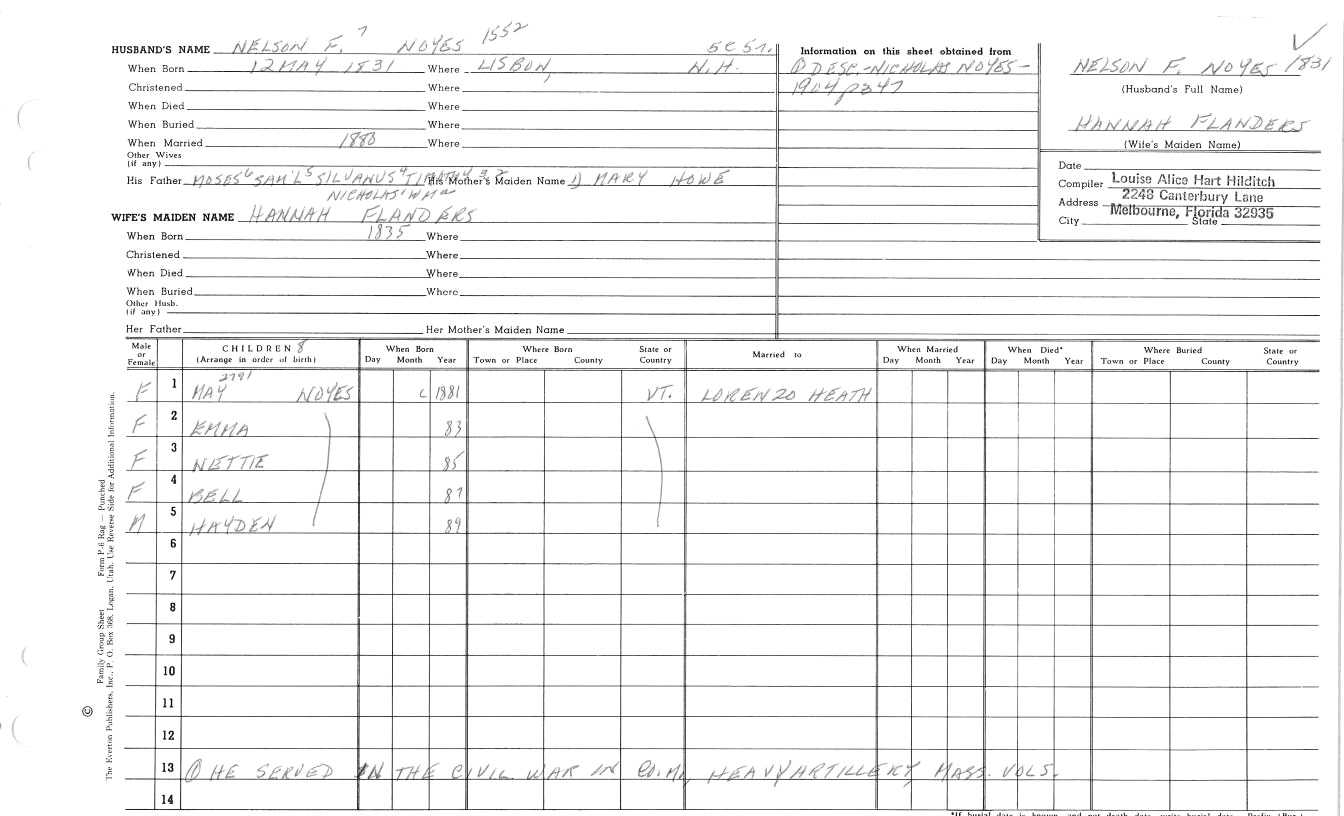 HUSBAND'S NAME NELSON F. 7 NOYES 1552 5C 57.
When Born 12 MAY 1831 Where LISBON, N.H.
Christened Where
When Died Where
When Buried Where
When Married 1880 Where
Other Wives
(if any)
His Father MOSES6 SAM'L5 SILVANUS4 TIMOTHY3 2 His Mother's Maiden Name 1) MARY HOWE
NICHOLAS1 WM
WIFE'S MAIDEN NAME HANNAH FLANDERS
When Born 1835 Where
Christened Where
When Died Where
When Buried Where
Other Husb.
(if any)
Her Father Her Mother's Maiden Name
Information on this sheet obtained from
① DESC.-NICHOLAS NOYES-
1904 p247
NELSON F. NOYES 1831
(Husband's Full Name)
HANNAH FLANDERS
(Wife's Maiden Name)
Date
Compiler Louise Alice Hart Hilditch
Address 2248 Canterbury Lane
Melbourne, Florida 32935
City State
Male or Female CHILDREN 8 (Arrange in order of birth) When Born Day Month Year Where Born Town or Place County State or Country Married to When Married Day Month Year When Died* Day Month Year Where Buried Town or Place County State or Country
F 1 2791 MAY NOYES C 1881 VT. LORENZO HEATH
F 2 EMMA 83
F 3 NETTIE 85
F 4 BELL 87
M 5 HAYDEN 89
6
7
8
9
10
11
12
13 ① HE SERVED IN THE CIVIL WAR IN CO. M, HEAVY ARTILLERY, MASS. VOLS.
14
© Family Group Sheet Form P-8 Rag — Punched
The Everton Publishers, Inc., P. O. Box 368, Logan, Utah. Use Reverse Side for Additional Information.
*If burial date is known, and not death date, write burial date. Prefix (Bur.)